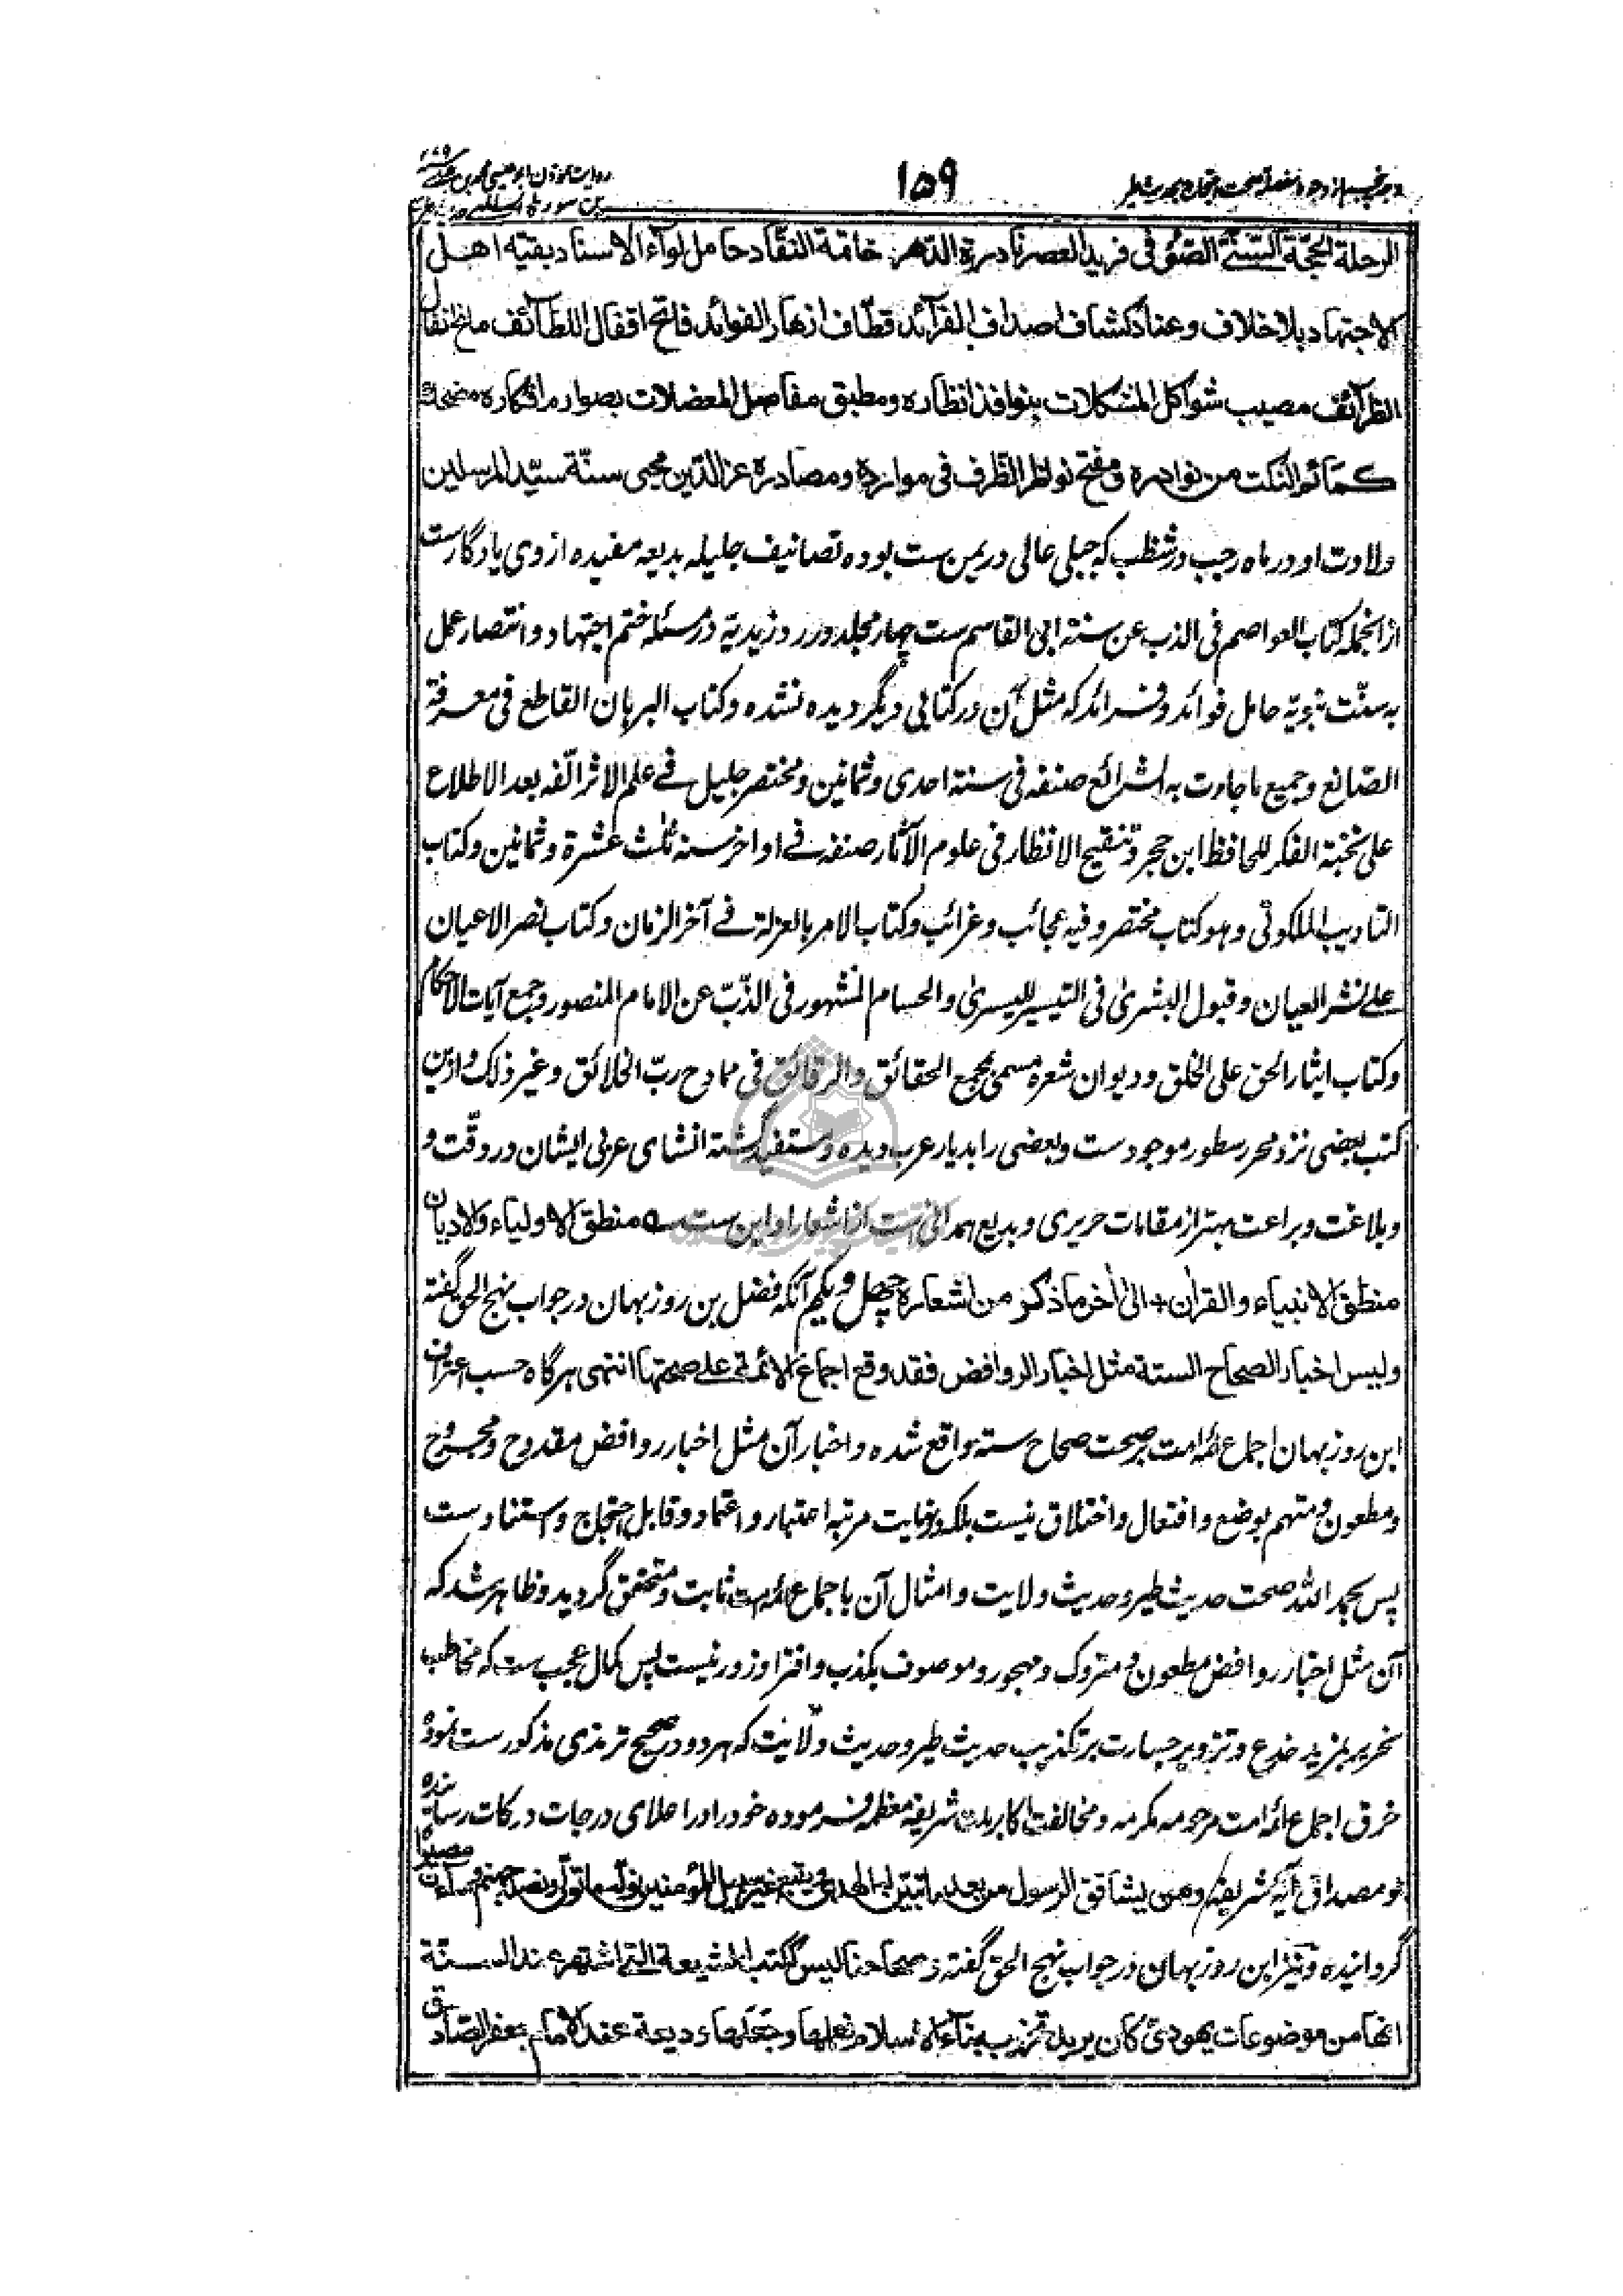 ۱۵۹
الرحلة الحجّة السّنّي الصّوفي فريد العصر نادرة الدّهر خاتمة النقّاد حامل لوآء الاسناد بقيّة اهل
الاجتهاد بلا خلاف وعناد كشاف اصداف الفرآئد قطّاف ازهار الفوائد فاتح اقفال اللطآئف مانح انفال
الظرآئف مصيب شواكل المشكلات بنوافذ انظاره ومطبق مفاصل المعضلات بصوارم افكاره مضحك
كمائم النكت من نوادره ومفتح نواظر الظرف فى موارده ومصادره عز الدّين محيى سنّة سيّد المرسلين
ولادت او در ماه رجب در شظب كه جبلى عالى در يمن ست بوده تصانيف جليله بديعه مفيده از وى يادگارست
ازانجمله كتاب العواصم فى الذب عن سنة ابى القاسم ست چهار مجلد در رد زيديّه در مسئله ختم اجتهاد و انتصار عمل
به سنّت نبويّه حامل فوائد و فرائد كه مثل آن در كتابى ديگر ديده نشده و كتاب البرهان القاطع فى معرفة
الصّانع وجميع ما جاءت به الشرائع صنفه فى سنة احدى وثمانين ومختصر جليل فے علم الاثر الّفه بعد الاطلاع
على نخبة الفكر للحافظ ابن حجر و تنقيح الانظار فى علوم الآثار صنفه فے اواخر سنة ثلث عشرة وثمانين وكتاب
التاديب الملكوتى وهو كتاب مختصر وفيه عجائب وغرائب وكتاب الامر بالعزلة فے آخر الزمان وكتاب نصر الاعيان
على نشر العيان وقبول البشرىٰ فى التيسير لليسرىٰ والحسام المشهور فى الذّبّ عن الامام المنصور وجمع آيات الاحكام
وكتاب ايثار الحق على الخلق وديوان شعره مسمى بمجمع الحقائق والرقائق فى ممادح ربّ الخلائق وغير ذلك و ازين
كتب بعضى نزد محرر سطور موجودست و بعضى را بديار عرب ديده و مستفيد گشته انشاى عربى ايشان در دقّت و
و بلاغت و براعت بهتر از مقامات حريرى و بديع همدانى ست از اشعار او اين ست منطق الاولياء والاديان
منطق الانبياء والقرأن الى أخر ما ذكر من اشعاره چهل و يكم آنكه فضل بن روزبهان در جواب نهج الحق گفته
وليس اخبار الصحاح الستة مثل اخبار الروافض فقد وقع اجماع الائمة على صحتها انتهى هرگاه حسب اعتراف
ابن روزبهان اجماع ائمه امت بر صحت صحاح سته واقع شده و اخبار آن مثل اخبار روافض مقدوح و مجروح
و مطعون و متهم بوضع و افتعال و اختلاق نيست بلكه در نهايت مرتبه اعتبار و اعتماد و قابل احتجاج و استنادست
پس بحمد اللّٰه صحت حديث طير و حديث ولايت و امثال آن باجماع ائمه امت ثابت و متحقق گرديد و ظاهر شد كه
آن مثل اخبار روافض مطعون و متروك و مهجور و موصوف بكذب و افترا و زور نيست پس كمال عجب ست كه مخاطب
نحرير بمزيد خدع و تزوير جسارت بر تكذيب حديث طير و حديث ولايت كه هر دو در صحيح ترمذى مذكورست نموده
خرق اجماع ائمه امت مرحومه مكرمه و مخالفت اكابر ملت شريفه معظمه فرموده خود را در اعلاى درجات دركات رسانده
و مصداق آيه شريفه ومن يشاقق الرسول من بعد ما تبيّن له الهدى ويتبع غير سبيل المؤمنين نولّه ما تولّى ونصله جهنم وساءت مصيرا
گردانيده و نيز ابن روزبهان در جواب نهج الحق گفته وصحاحنا ليس ككتب الشيعة التى اشتهر عند السنّة
انها من موضوعات يهودىّ كان يريد تخريب بنآء الاسلام فعملها وجعلها وديعة عند الامام جعفر الصّادق